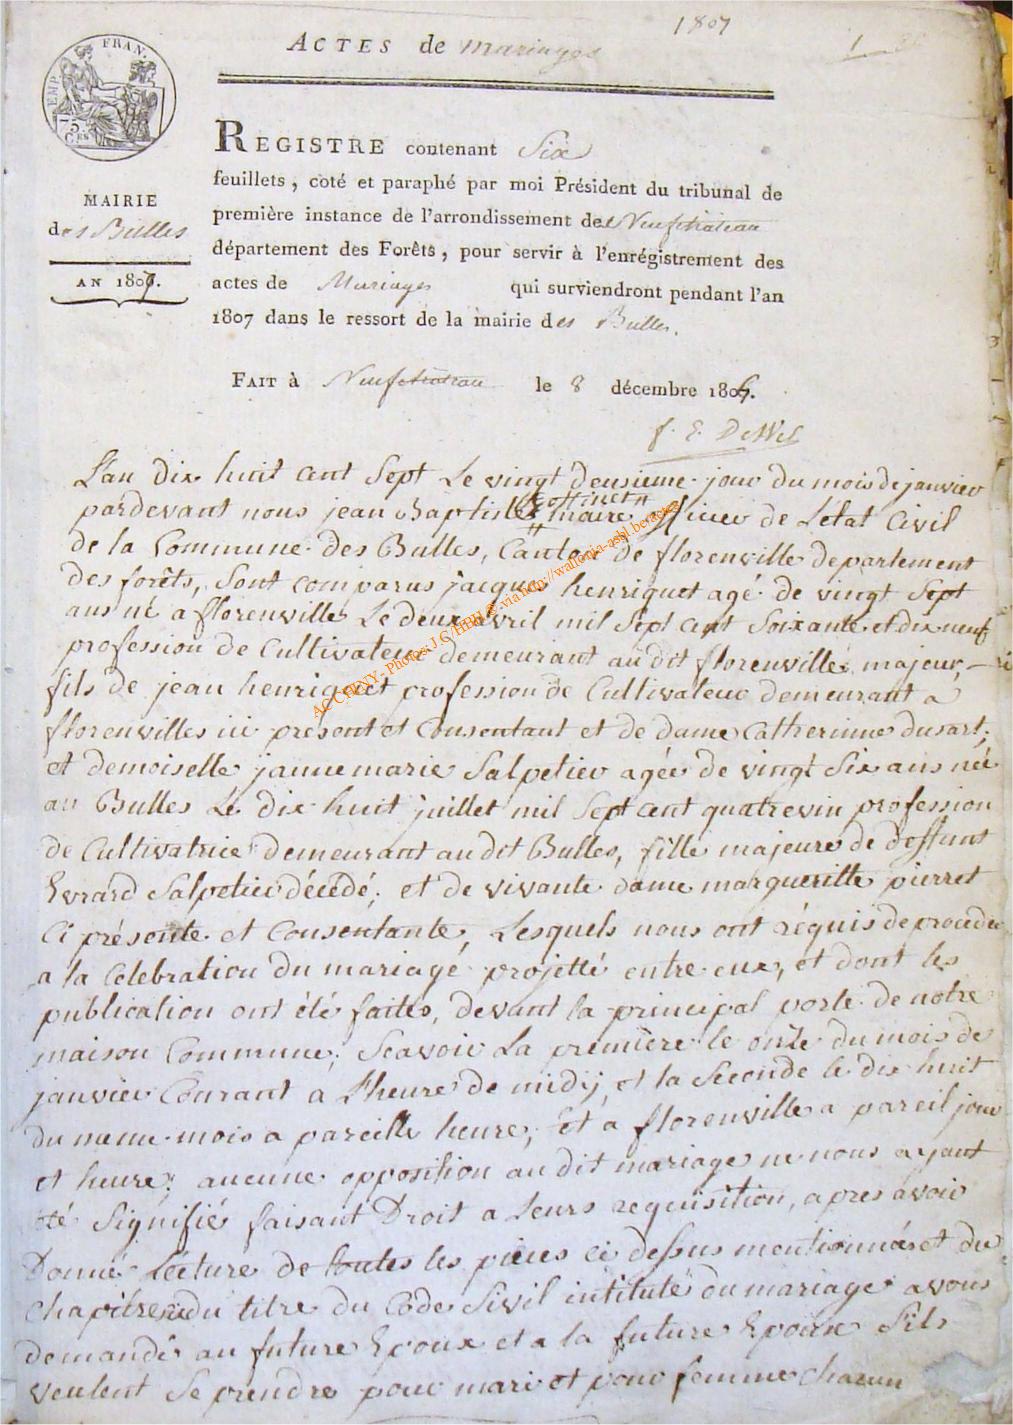 1807
1
ACTES de mariages
EMP. FRAN.
75 Cts
MAIRIE
des Bulles
AN 1807.
REGISTRE contenant Six
feuillets, coté et paraphé par moi Président du tribunal de
première instance de l'arrondissement de Neufchateau
département des Forêts, pour servir à l'enrégistrement des
actes de Mariages qui surviendront pendant l'an
1807 dans le ressort de la mairie des Bulles.
FAIT à Neufchateau le 8 décembre 1806.
L'an dix huit cent Sept Le vingt deusieme jour du mois de janvier
pardevant nous jean Baptiste maire officier de L'état Civil
de la Commune des Bulles, Canton de florenville departement
des forêts, Sont comparus jacques henriquet agé de vingt Sept
ans né a florenville Le deux avril mil Sept cent Soixante et dix neuf
profession de Cultivateur demeurant audit florenville, majeur,
fils de jean henriquet profession de Cultivateur demeurant a
florenvilles ici present et Consentant et de dame Catherinne dusart;
et demoiselle jannemarie Salpetier agée de vingt Six ans née
au Bulles Le dix huit juillet mil Sept cent quatrevin profession
de Cultivatrice demeurant audit Bulles, fille majeure de deffunt
Evrard Salpetier décédé; et de vivante dame margueritte pierret
Ci présente et Consentante, Lesquels nous ont réquis de proceder
a la Celebration du mariage projetté entre eux, et dont les
publication ont été faites, devant la principal porte de notre
maison Commune; Scavoir La première le onze du mois de
janvier Courant a L'heure de midij, et la Seconde le dix huit
du meme mois a pareille heure; Et a florenville a pareil jour
et heure; aucune opposition audit mariage ne nous ayant
été Signifié faisant Droit a Leurs requisition, apres avoir
Donné Lecture de toutes les pieces ci dessus mentionnés et du
Chapitre du titre du Code Sivil intitulé du mariage avons
demandé au future Epoux et a la future Epouse Sils
veulent Se prendre pour mari et pour femme chacun
AC CHINY- Photos J.C/HBH@ via http://wallonia-asbl.be/actes